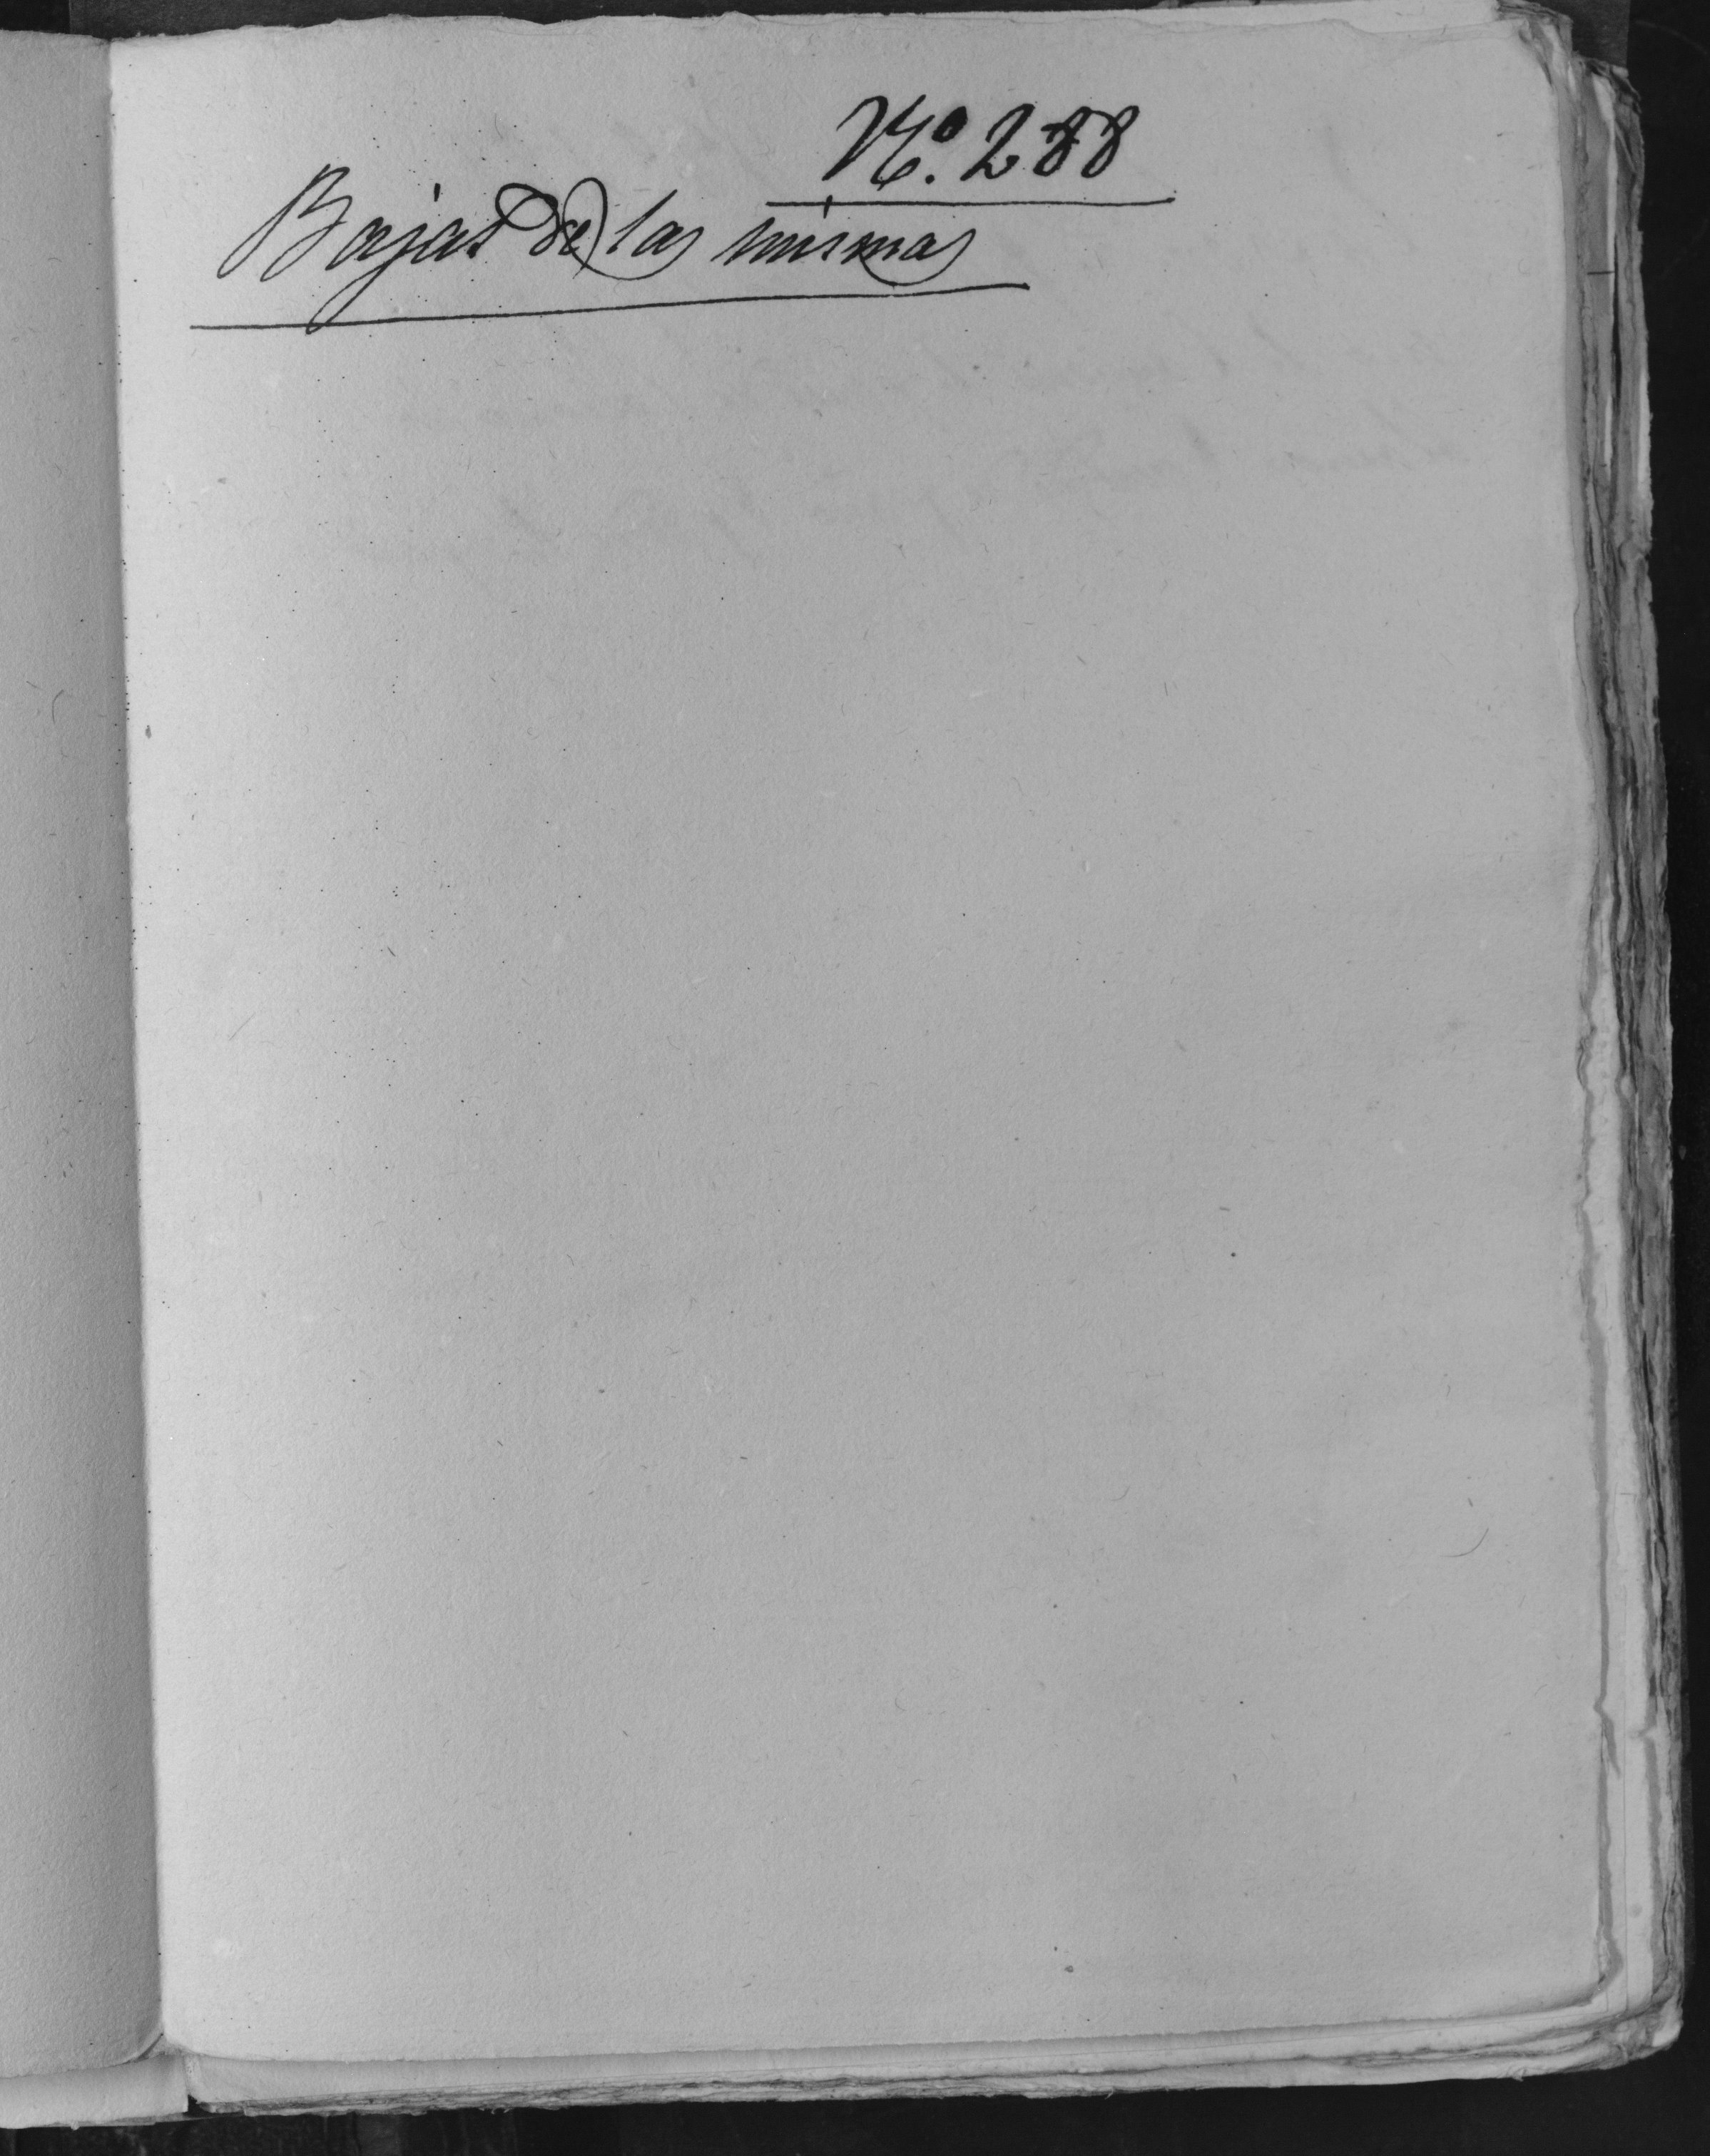 Nº. 288
Bajas de las mismas